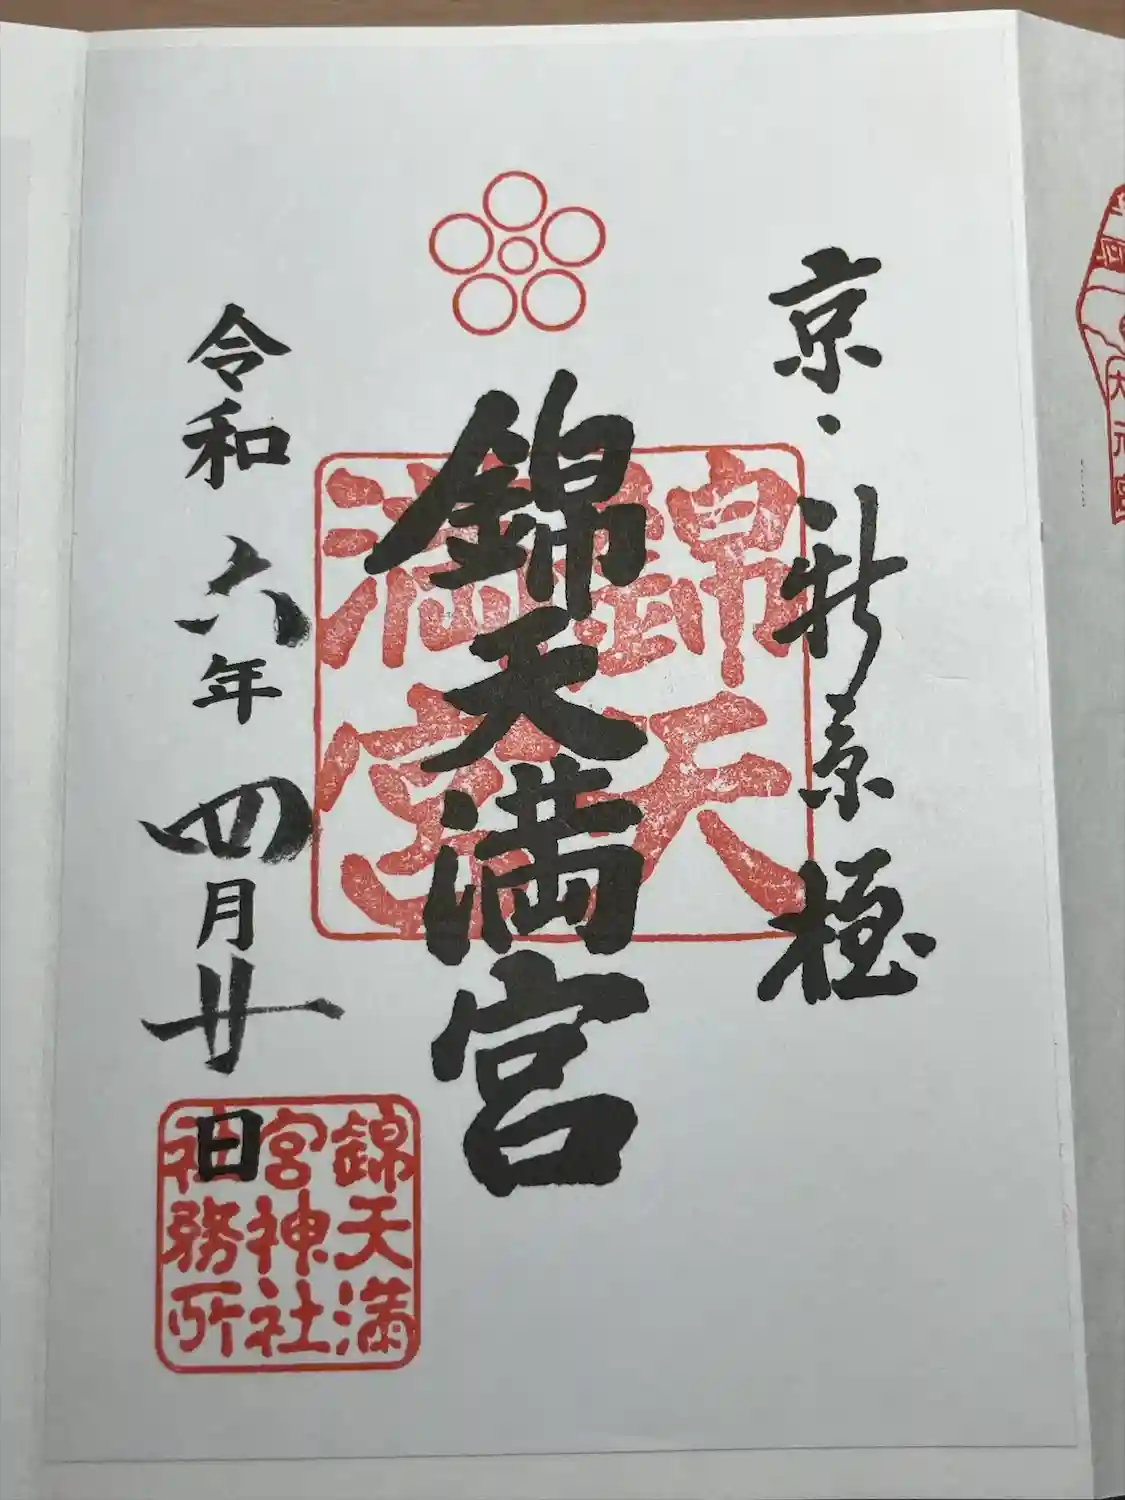 京・新京極
錦天満宮
錦天
満宮
令和六年四月廿日
錦天満
宮神社
社務所
大元宮